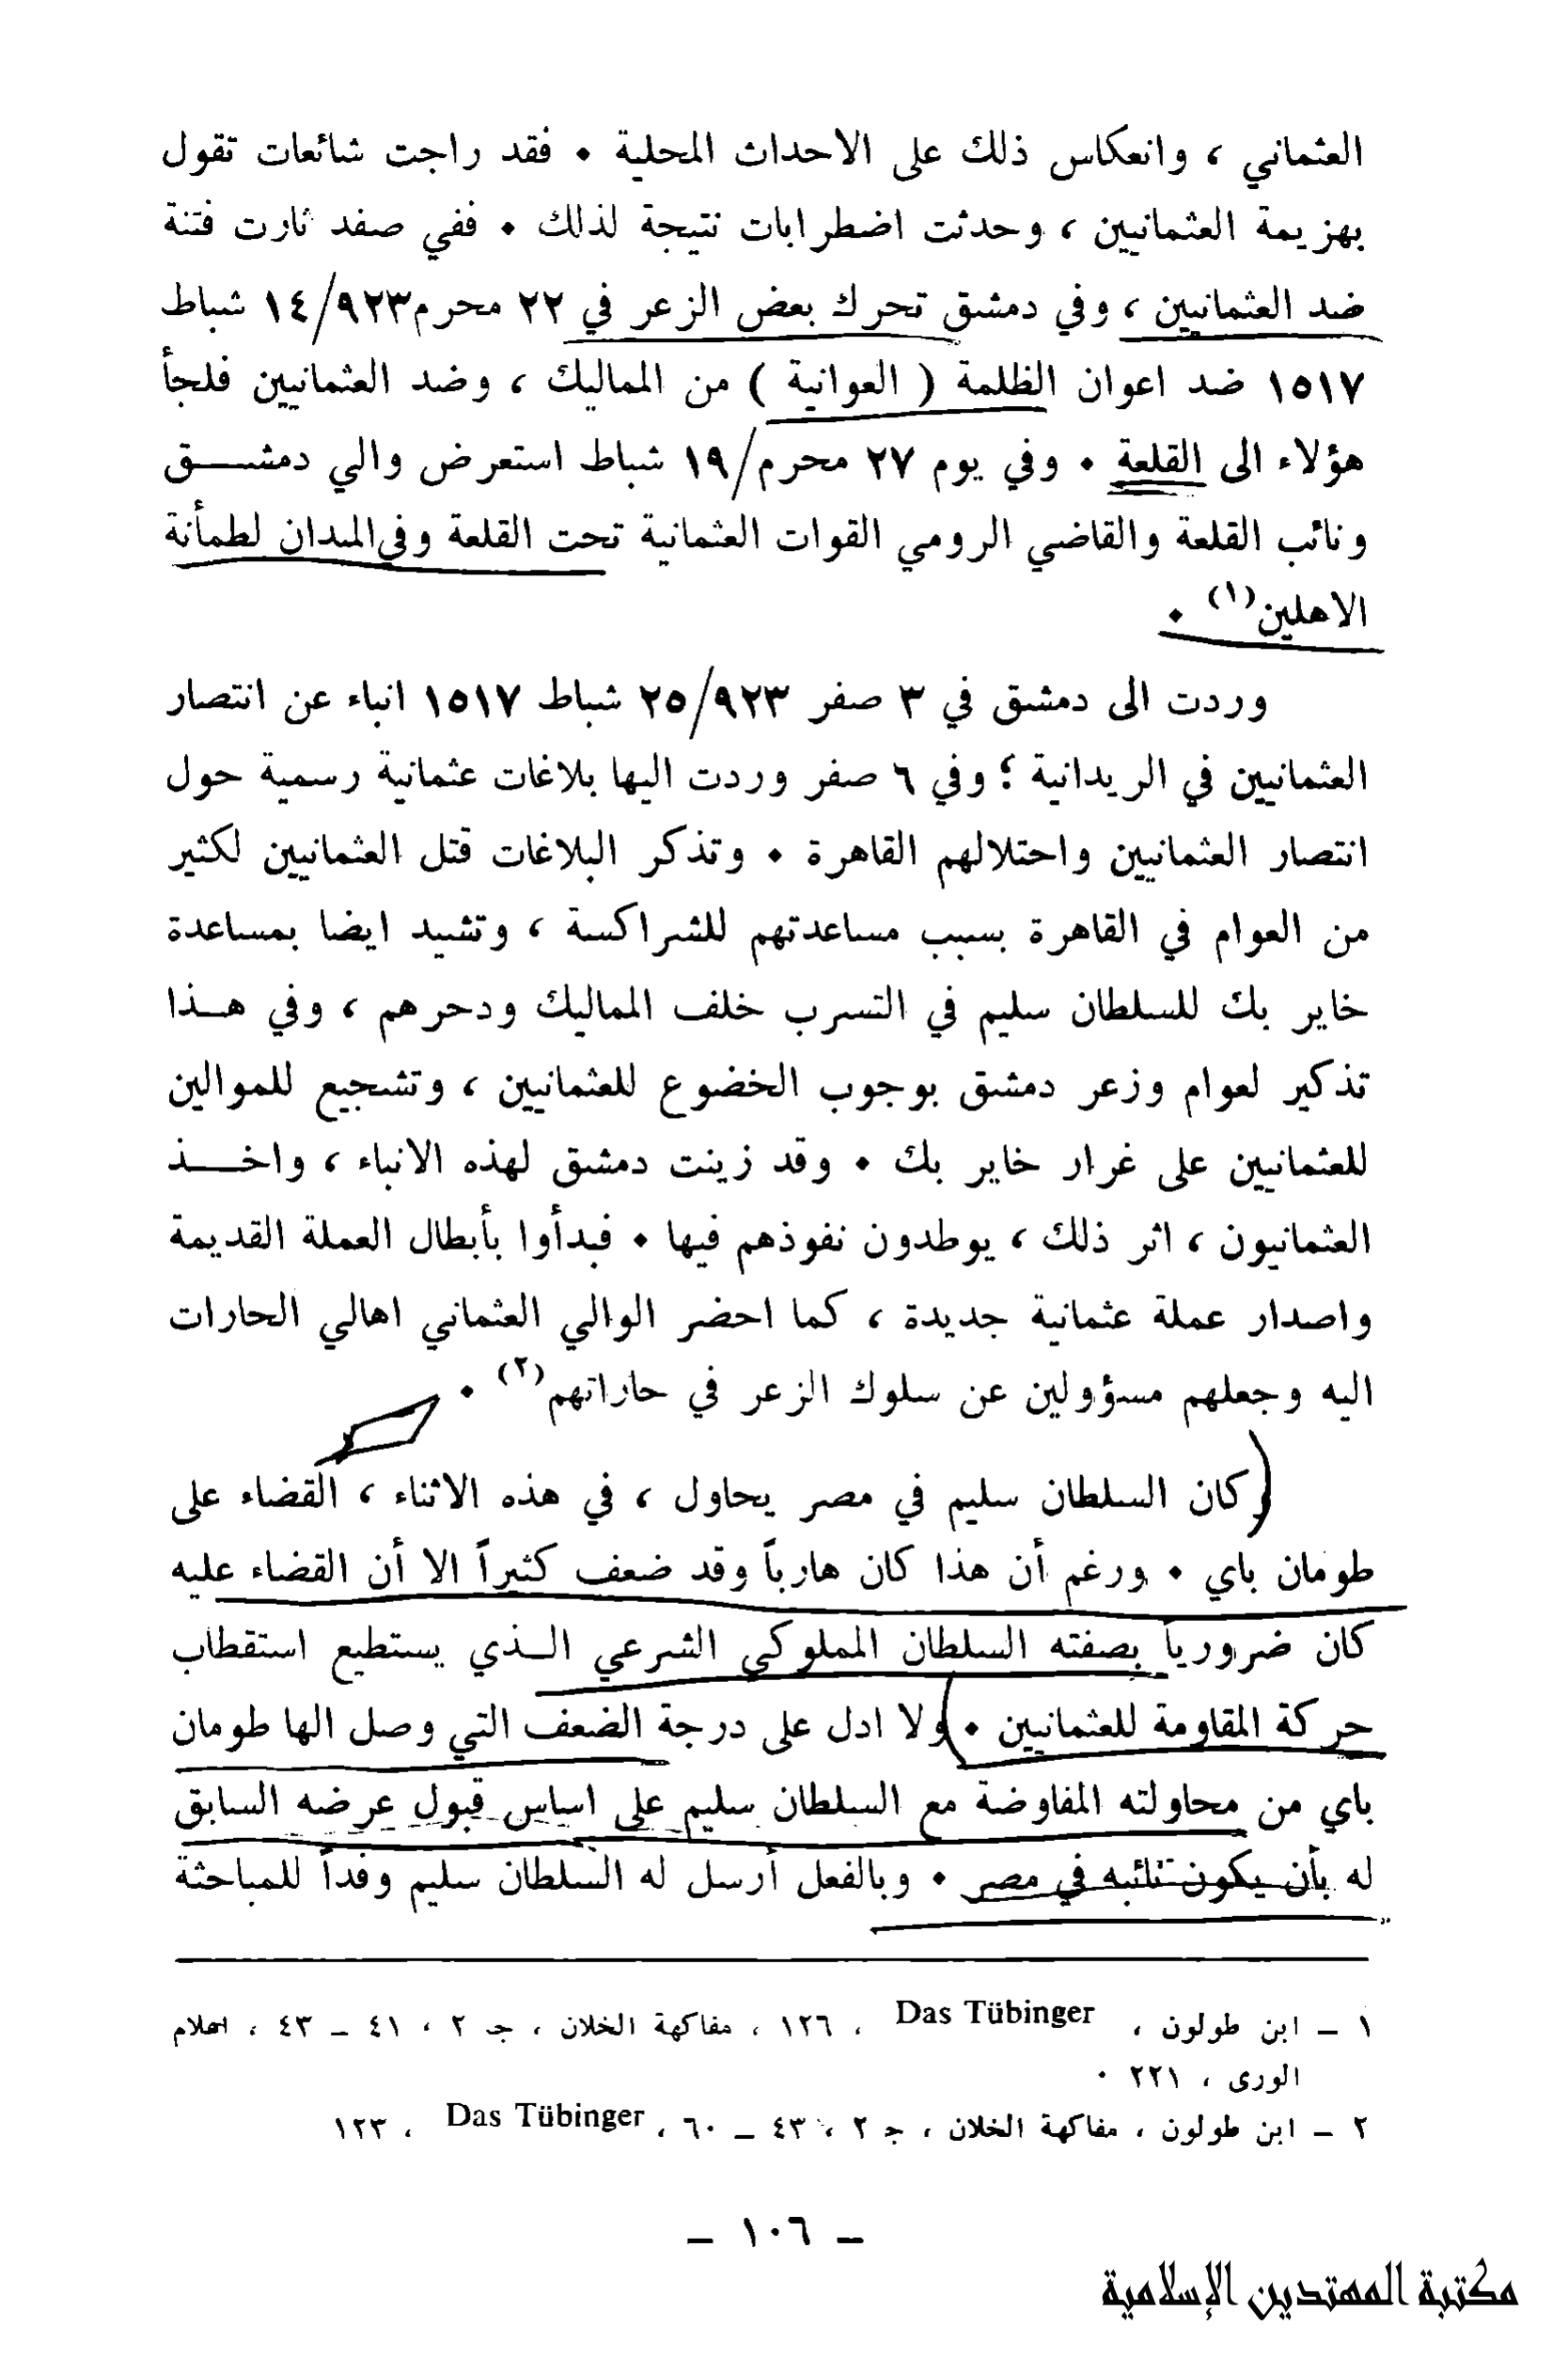 العثماني ، وانعكاس ذلك على الاحداث المحلية . فقد راجت شائعات تقول
بهزيمة العثمانيين ، وحدثت اضطرابات نتيجة لذلك . ففي صفد ثارت فتنة
ضد العثمانيين ، وفي دمشق تحرك بعض الزعر في ٢٢ محرم ٩٢٣/١٤ شباط
١٥١٧ ضد اعوان الظلمة ( العوانية ) من المماليك ، وضد العثمانيين فلجأ
هؤلاء الى القلعة . وفي يوم ٢٧ محرم/١٩ شباط استعرض والي دمشــق
ونائب القلعة والقاضي الرومي القوات العثمانية تحت القلعة وفي الميدان لطمأنة
الاهلين(١) .
وردت الى دمشق في ٣ صفر ٩٢٣/٢٥ شباط ١٥١٧ انباء عن انتصار
العثمانيين في الريدانية ؛ وفي ٦ صفر وردت اليها بلاغات عثمانية رسمية حول
انتصار العثمانيين واحتلالهم القاهرة . وتذكر البلاغات قتل العثمانيين لكثير
من العوام في القاهرة بسبب مساعدتهم للشراكسة ، وتشيد ايضا بمساعدة
خاير بك للسلطان سليم في التسرب خلف المماليك ودحرهم ، وفي هــذا
تذكير لعوام وزعر دمشق بوجوب الخضوع للعثمانيين ، وتشجيع للموالين
للعثمانيين على غرار خاير بك . وقد زينت دمشق لهذه الانباء ، واخــذ
العثمانيون ، اثر ذلك ، يوطدون نفوذهم فيها . فبدأوا بأبطال العملة القديمة
واصدار عملة عثمانية جديدة ، كما احضر الوالي العثماني اهالي الحارات
اليه وجعلهم مسؤولين عن سلوك الزعر في حاراتهم(٢) .
كان السلطان سليم في مصر يحاول ، في هذه الاثناء ، القضاء على
طومان باي . ورغم أن هذا كان هارباً وقد ضعف كثيراً الا أن القضاء عليه
كان ضرورياً بصفته السلطان المملوكي الشرعي الــذي يستطيع استقطاب
حركة المقاومة للعثمانيين . ولا ادل على درجة الضعف التي وصل الها طومان
باي من محاولته المفاوضة مع السلطان سليم على اساس قبول عرضه السابق
له بأن يكون نائبه في مصر . وبالفعل أرسل له السلطان سليم وفداً للمباحثة
١ – ابن طولون ، Das Tübinger ، ١٢٦ ، مفاكهة الخلان ، جـ ٢ ، ٤١ – ٤٣ ، اعلام
الورى ، ٢٢١ .
٢ – ابن طولون ، مفاكهة الخلان ، جـ ٢ ، ٤٣ – ٦٠ ، Das Tübinger ، ١٢٣
– ١٠٦ –
مكتبة المهتدين الإسلامية